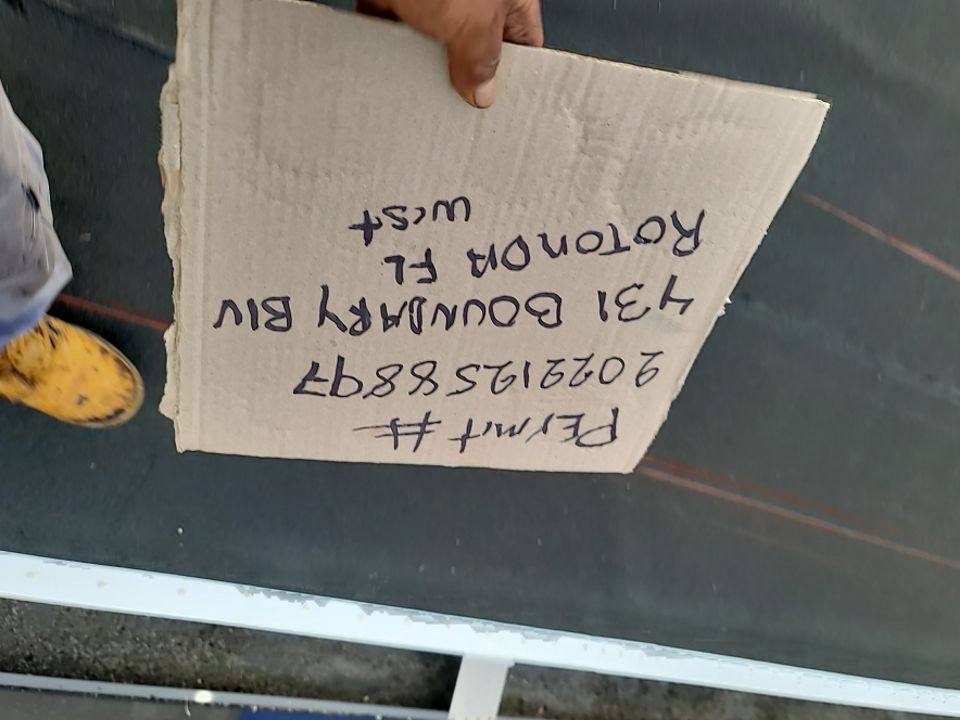 PERMIT #
20221258897
431 BOUNDARY BLV
ROTONDA FL
WEST